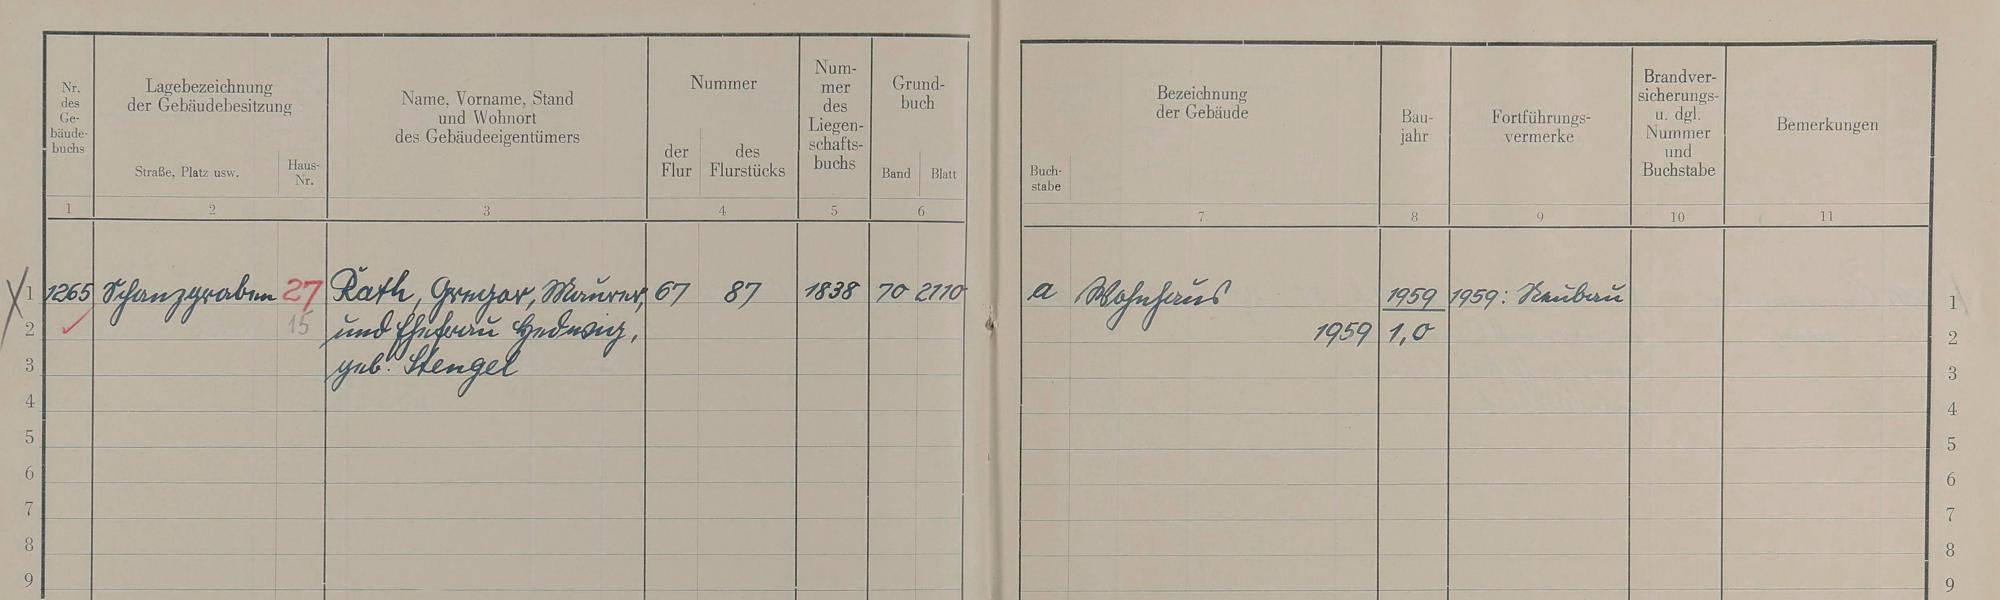 Nr.
des
Ge-
bäude-
buchs
Lagebezeichnung
der Gebäudebesitzung
Straße, Platz usw.
Haus-
Nr.
Name, Vorname, Stand
und Wohnort
des Gebäudeeigentümers
Nummer
der
Flur
des
Flurstücks
Num-
mer
des
Liegen-
schafts-
buchs
Grund-
buch
Band
Blatt
Buch-
stabe
Bezeichnung
der Gebäude
Bau-
jahr
Fortführungs-
vermerke
Brandver-
sicherungs-
u. dgl.
Nummer
und
Buchstabe
Bemerkungen
1 2 3 4 5 6 7 8 9 10 11
1 1265 Schanzgraben 27 Rath, Gregor, Maurer, 67 87 1838 70 2110 a Wohnhaus 1959 1959: Neubau 1
2 15 und Ehefrau Hedwig, 1959 1,0 2
3 geb. Stengel 3
4 4
5 5
6 6
7 7
8 8
9 9